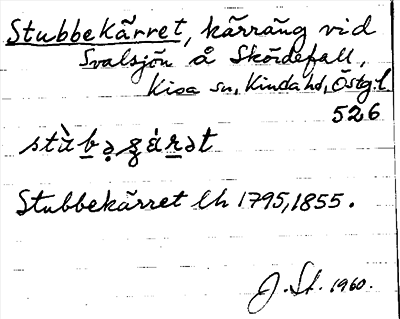 Stubbekärret, kärräng vid
Svalsjön å Skördefall,
Kisa sn, Kinda hd, Östg. l.
526
stùbəgárət
Stubbekärret lh 1795, 1855.
J. St. 1960.